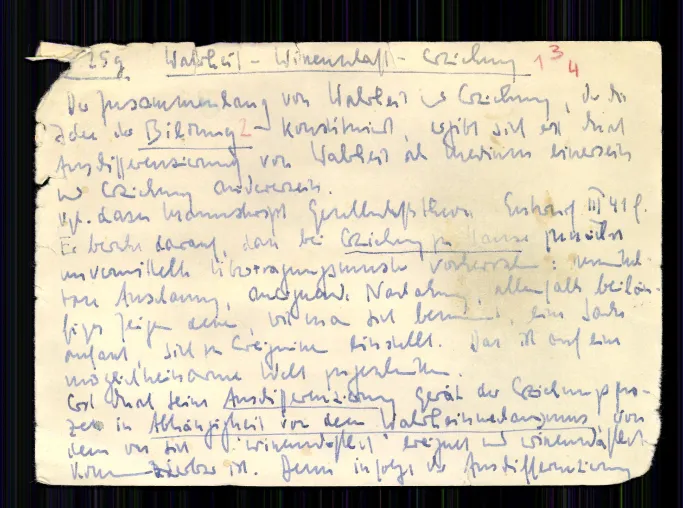 25g Wahrheit - Wissenschaft - Erziehung 1 3 4
Der Zusammenhang von Wahrheit u Erziehung, der die
Idee der Bildung 2 konstituiert, ergibt sich erst durch
Ausdifferenzierung von Wahrheit als Medium einerseits
und Erziehung andererseits.
Vgl. dazu Manuskript Gesellschaftstheorie III 41 f.
Er beruht darauf, dass bei Erziehung zu Hause zunächst
unvermittelte Übertragungsmuster vorherrschen: unmittel-
bare Anschauung, Nachahmung, allenfalls beiläu-
figes Zeigen dessen, wie man sich benimmt, eine Sache
anfasst, sich zu Ereignissen einstellt. Das ist auf eine
möglichkeitsarme Welt zugeschnitten.
Erst durch seine Ausdifferenzierung gerät der Erziehungspro-
zeß in Abhängigkeit von dem Wahrheitsmechanismus von
dem was sich "wissenschaftlich" ereignet und wissenschaftlich
kommunizierbar ist. Denn infolge der Ausdifferenzierung